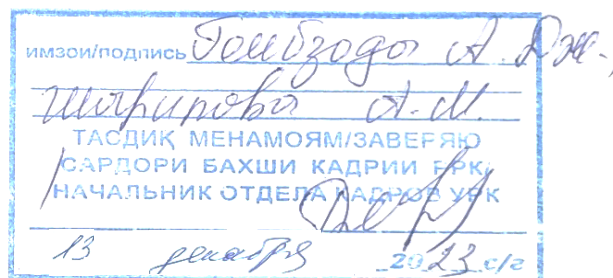 имзои/подпись Гоибзода А. Дж.,
Шарипова А. М.
ТАСДИҚ МЕНАМОЯМ/ЗАВЕРЯЮ
САРДОРИ БАХШИ КАДРИИ РРК/
НАЧАЛЬНИК ОТДЕЛА КАДРОВ УРК
13 декабря 2023 с/г